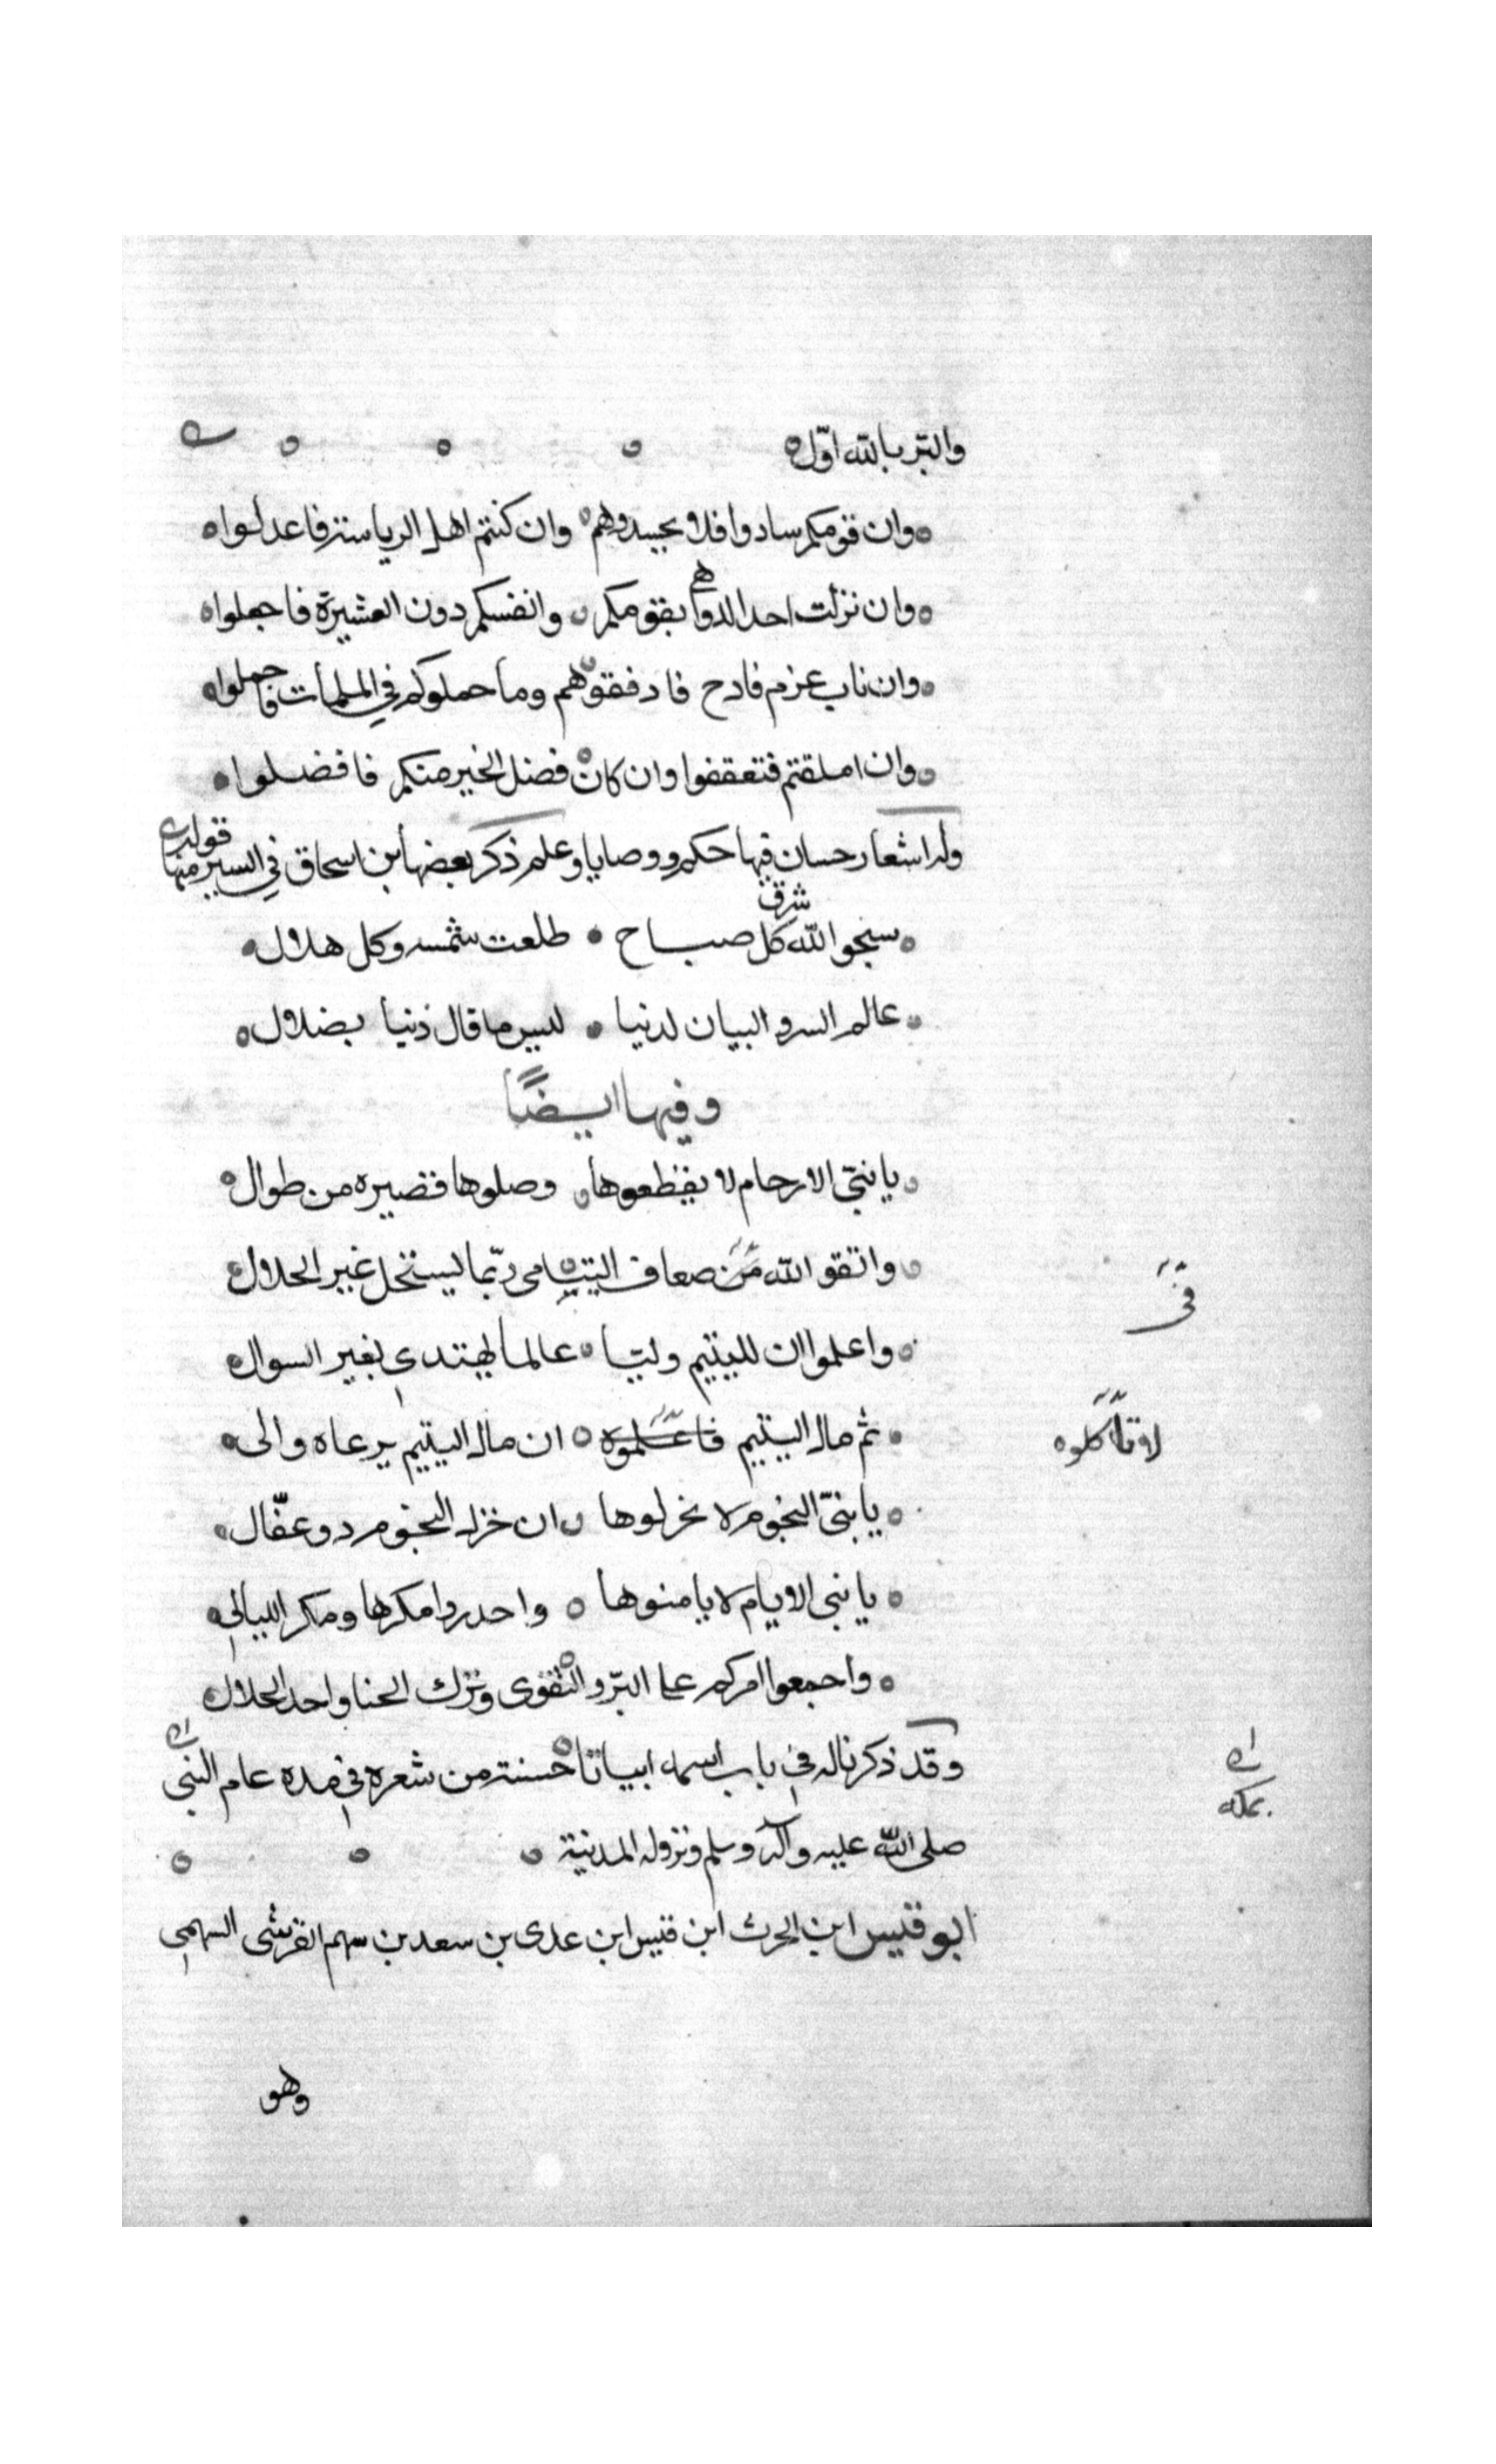 والبر بالله اول
وان قومكم سادوا فلا تحسدوهم وان كنتم اهل الرياسة فاعدلوا
وان نزلت احد الدواهي بقومكم وانفسكم دون العشيرة فاجعلوا
وان ناب عزم فادح فارفقوهم وما حملوكم في الملمات فاحملوا
وان املقتم فتعففوا وان كان فضل الخير منكم فافضلوا
وله اشعار حسان فيها حكم ووصايا وعلم ذكر بعضها ابن اسحاق في السير منها قوله
سبحوا الله شرق كل صباح طلعت شمسه وكل هلال
عالم السر والبيان لدنيا ليس ما قال ذنيا بضلال
وفيها ايضًا
يا بني الارحام لا تقطعوها وصلوها قصيره من طوال
واتقو الله من ضعاف اليتامى ربما يستحل غير الحلال
في
واعلموا ان لليتيم وليا عالما يهتدي بغير السوال
ثم مال اليتيم فاعلموه ان مال اليتيم يرعاه والى
لا تاكلوه
يا بني النجوم لا تخزلوها ان خزل النجوم دو عقال
يا بني الايام لا يامنوها واحدروا مكرها ومكر الليالي
واجمعوا امركم على البر والتقوى وترك الخنا واخد الحلال
وقد ذكرنا له في باب اسمه ابياتا حسنة من شعره في مده عام النبي
بمكه
صلى الله عليه وآله وسلم ونزوله المدنية
ابو قيس ابن الحرث ابن قيس ابن عدى بن سعد بن سهم القرشى السهمي
وهو